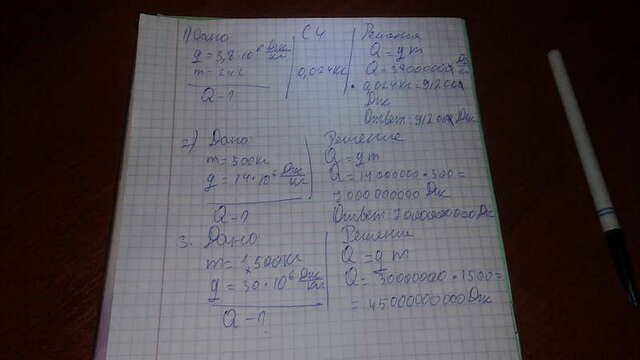 1) Дано
q = 3,8·10⁶ Дж/кг
m = 24г
Q - ?
СИ
0,024кг
Решения
Q = qm
Q = 38000000 Дж/кг
· 0,024кг = 912000
Дж
Ответ: 912000 Дж
2) Дано:
m = 500кг
q = 14·10⁶ Дж/кг
Q = ?
Решение
Q = qm
Q = 14000000·500 =
7000000000 Дж
Ответ: 7000000000 Дж
3. Дано
m = 1500кг
q = 30·10⁶ Дж/кг
Q - ?
Решение
Q = qm
Q = 30000000·1500 =
= 45000000000 Дж